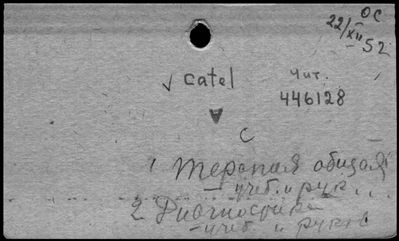 ОС
22/XII-52
√ catel
Чит.
446128
С
1 Терапия общая
– учеб. и рук.
2 Диагностика
– учеб. и руков